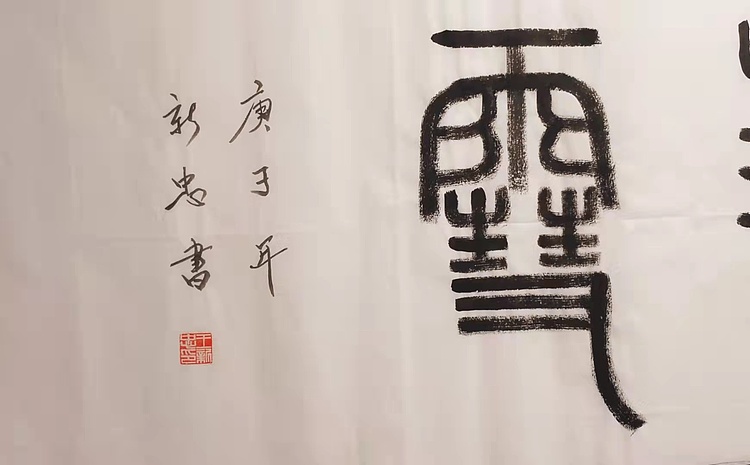 雪
庚子年
新忠書